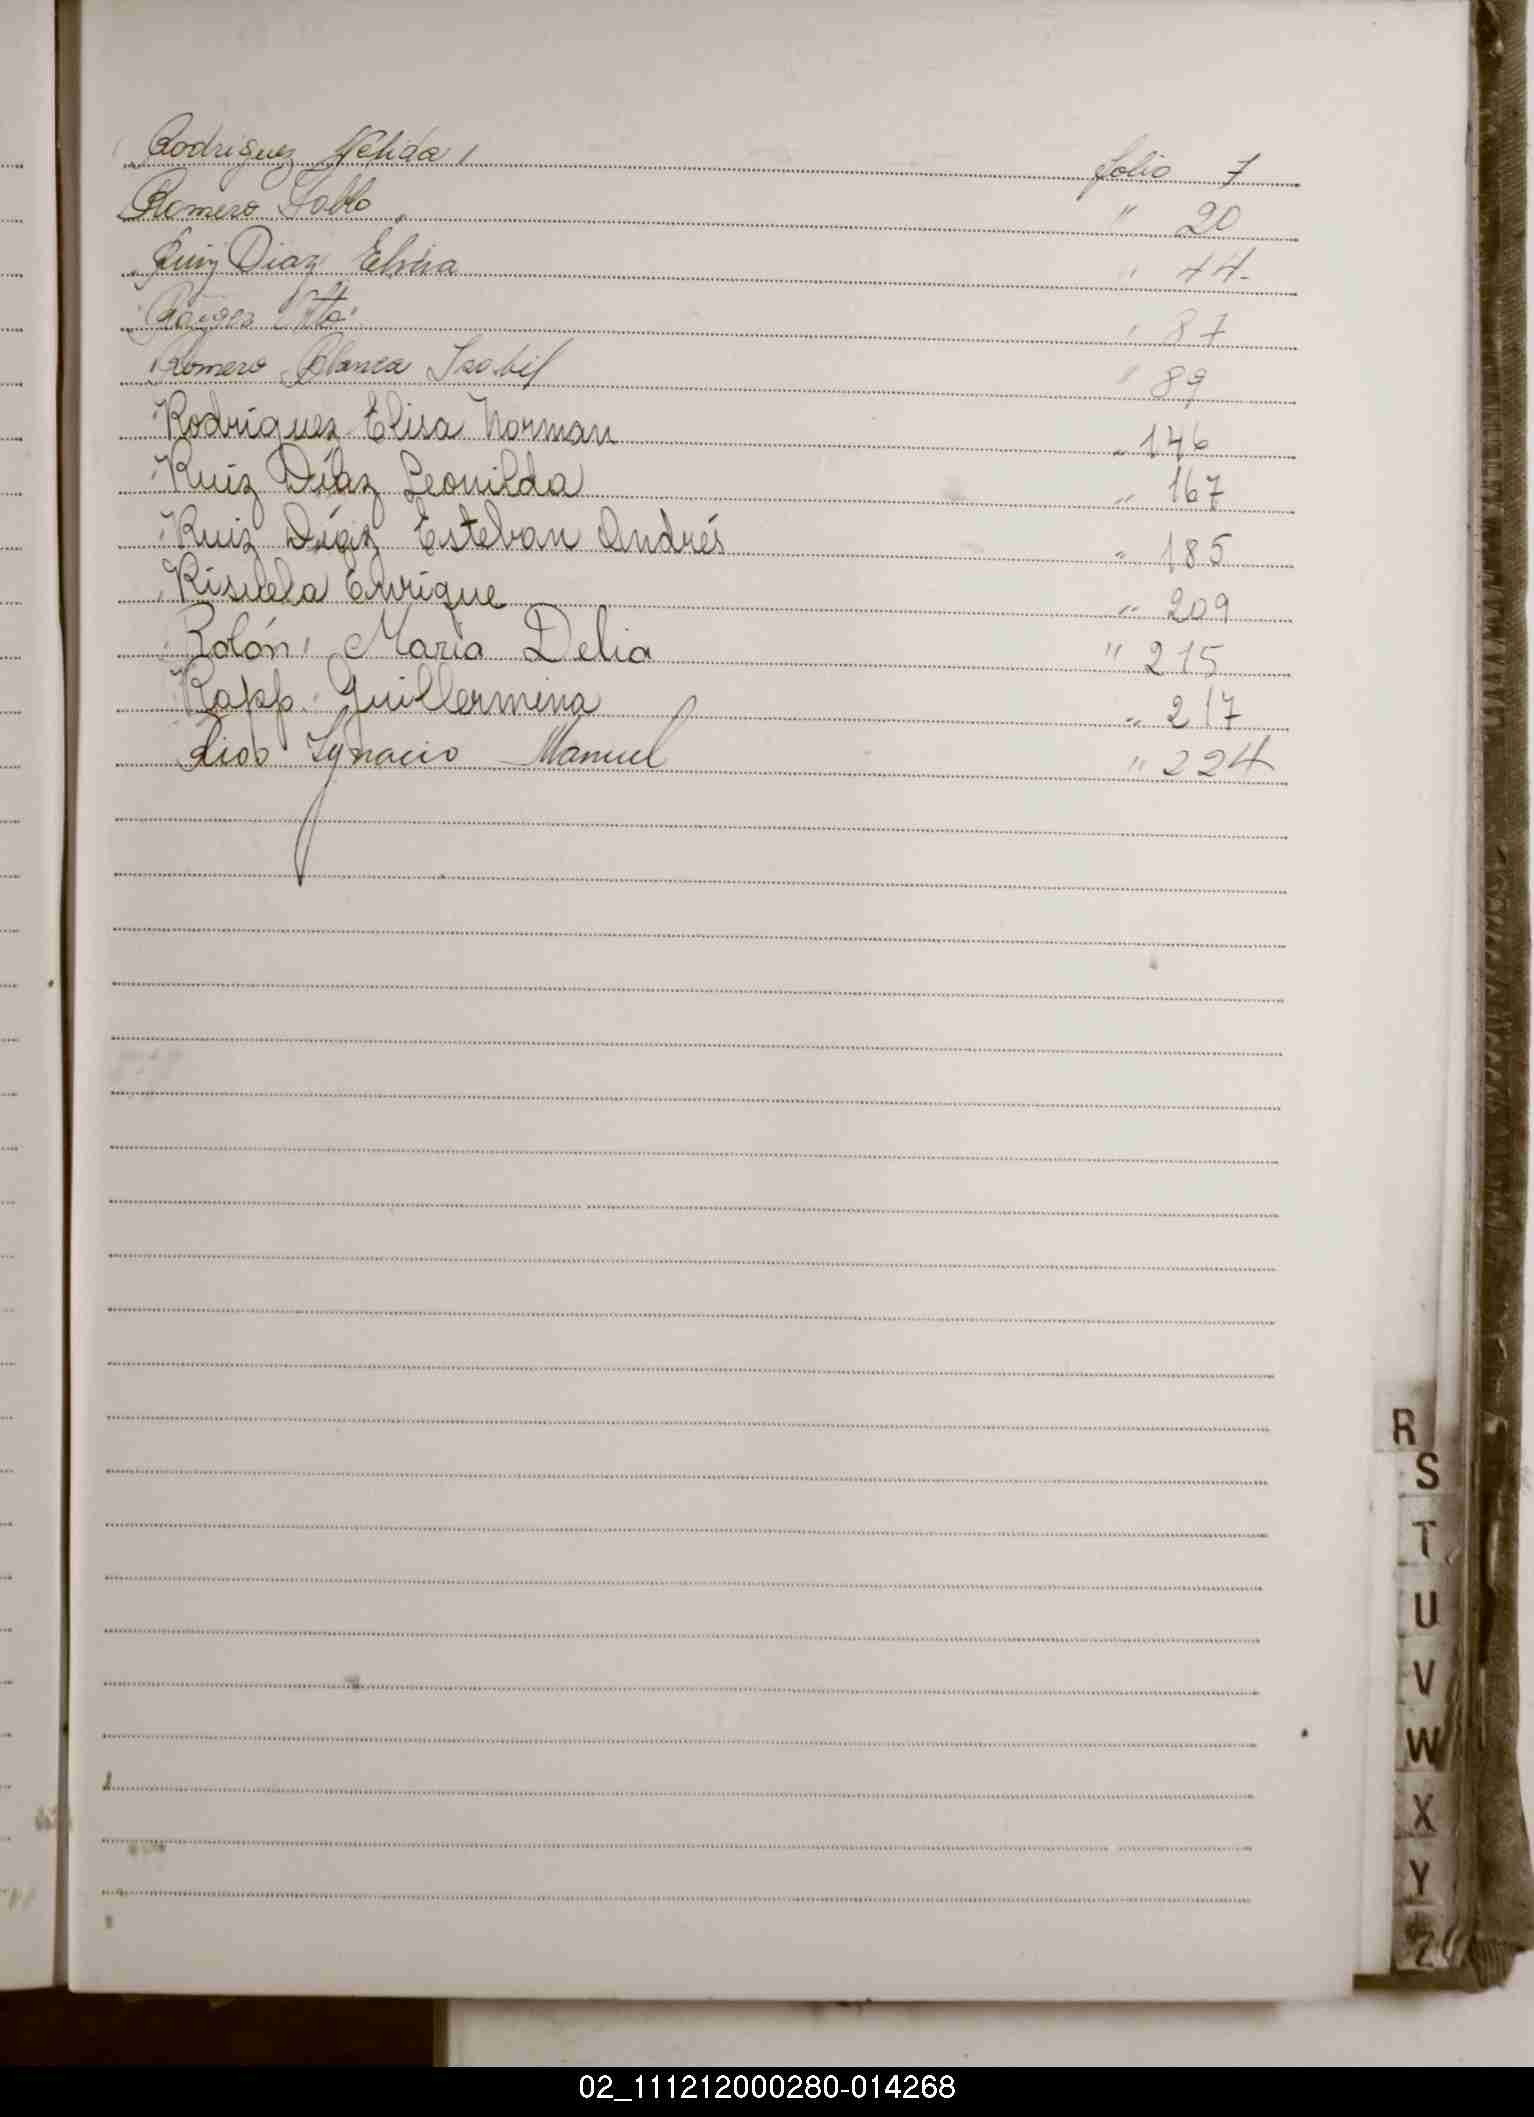 Rodriguez Nélida folio 7
Romero Pablo " 20
Ruiz Diaz Elvira " 44
Otto " 87
Romero Blanca Isabel " 89
Rodríguez Elisa Norman " 146
Ruíz Díaz Leonilda " 167
Ruiz Díaz Esteban Andrés " 185
Enrique " 209
Rolón, María Delia " 215
Rapp Guillermina " 217
Rios Ignacio Manuel " 224
R
S
T
U
V
W
X
Y
Z
02_111212000280-014268